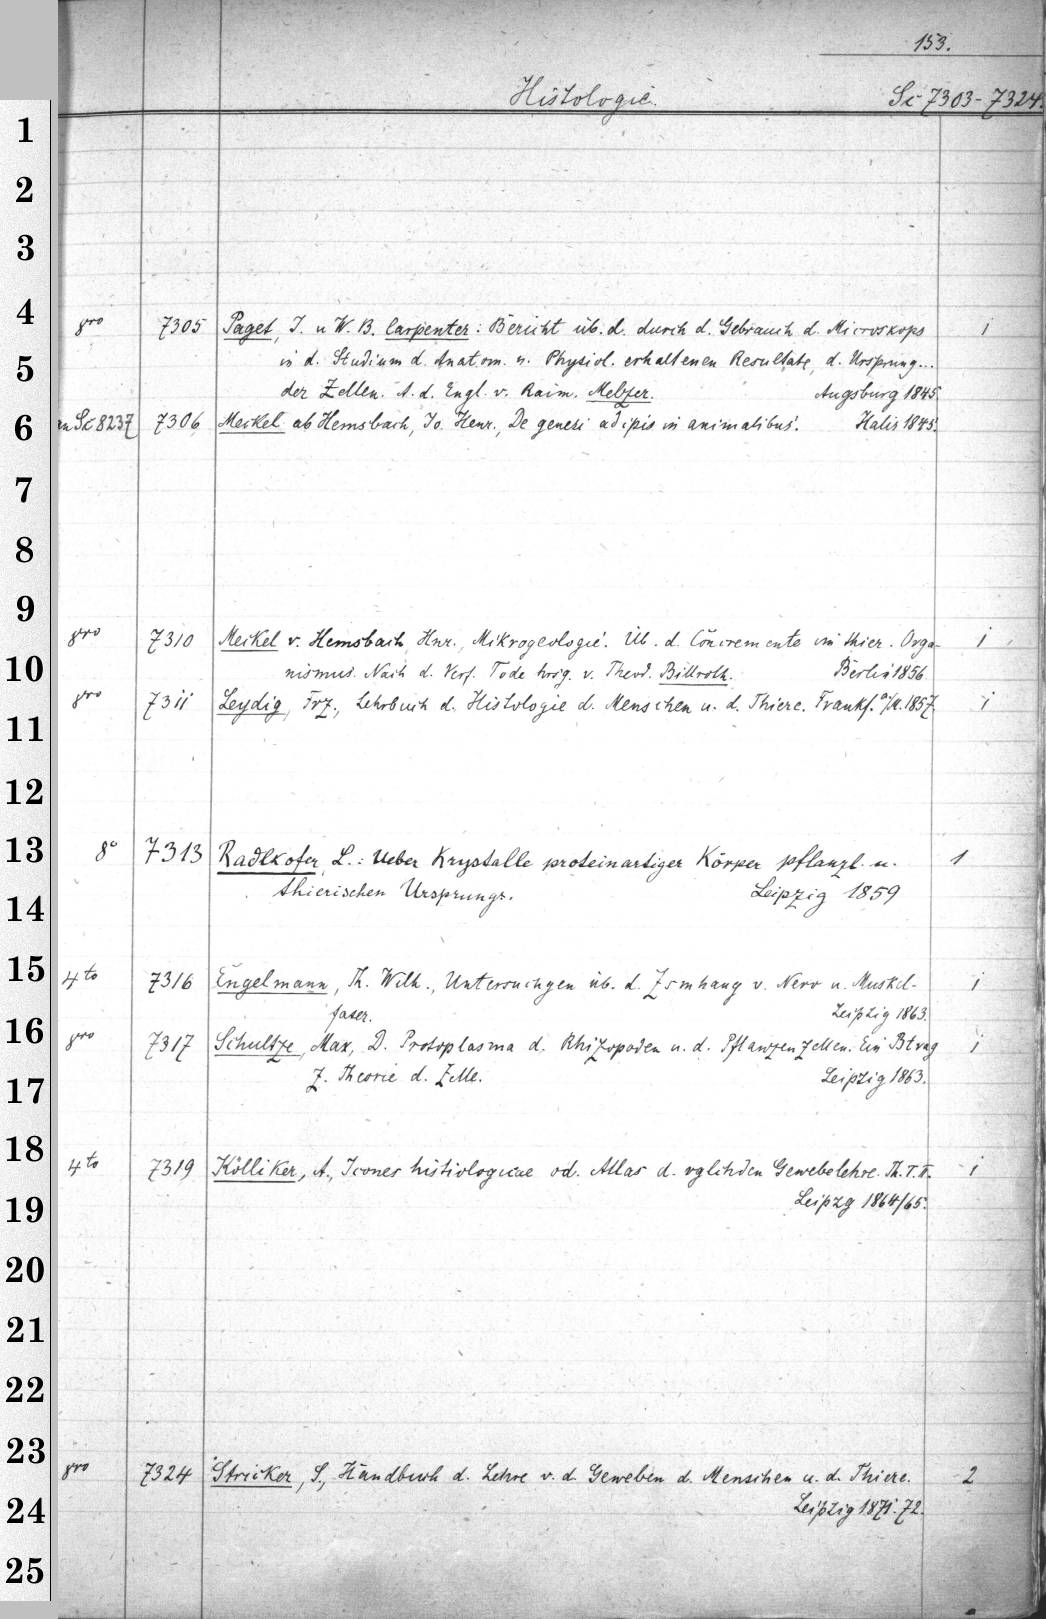 153.
Histologie. Sc 7303-7324.
1
2
3
4
8vo 7305 Paget, J. u W. B. Carpenter: Bericht üb. d. durch d. Gebrauch d. Microskops 1
5
in d. Studium d. Anatom. u. Physiol. erhaltenen Resultate, d. Ursprung...
der Zellen. A. d. Engl. v. Raim. Melzer. Augsburg 1845.
6
an Sc 8237 7306 Meckel ab Hemsbach, Jo. Henr., De genesi adipis in animalibus. Halis 1845.
7
8
9
8vo 7310 Meckel v. Hemsbach, Hnr., Mikrogeologie. Üb. d. Concremente im thier. Orga- 1
10
nismus. Nach d. Verf. Tode hrsg. v. Theod. Billroth. Berlin 1856.
8vo 7311 Leydig, Frz., Lehrbuch d. Histologie d. Menschen u. d. Thiere. Frankf. a/M. 1857. 1
11
12
13
8° 7313 Radlkofer, L.: Ueber Krystalle proteinartiger Körper pflanzl. u. 1
thierischen Ursprungs. Leipzig 1859
14
15
4to 7316 Engelmann, Th. Wilh., Untersuchgen üb. d. Zsmhang v. Nerv u. Muskel- 1
faser. Leipzig 1863.
16
8vo 7317 Schultze, Max, D. Protoplasma d. Rhizopoden u. d. Pflanzenzellen. Ein Btrag 1
z. Theorie d. Zelle. Leipzig 1863.
17
18
4to 7319 Kölliker, A., Icones histiologicae od. Atlas d. vglchden Gewebelehre. Th. I. II. 1
19
Leipzg 1864/65.
20
21
22
23
8vo 7324 Stricker, S., Handbuch d. Lehre v. d. Geweben d. Menschen u. d. Thiere. 2
24
Leipzig 1871-72.
25